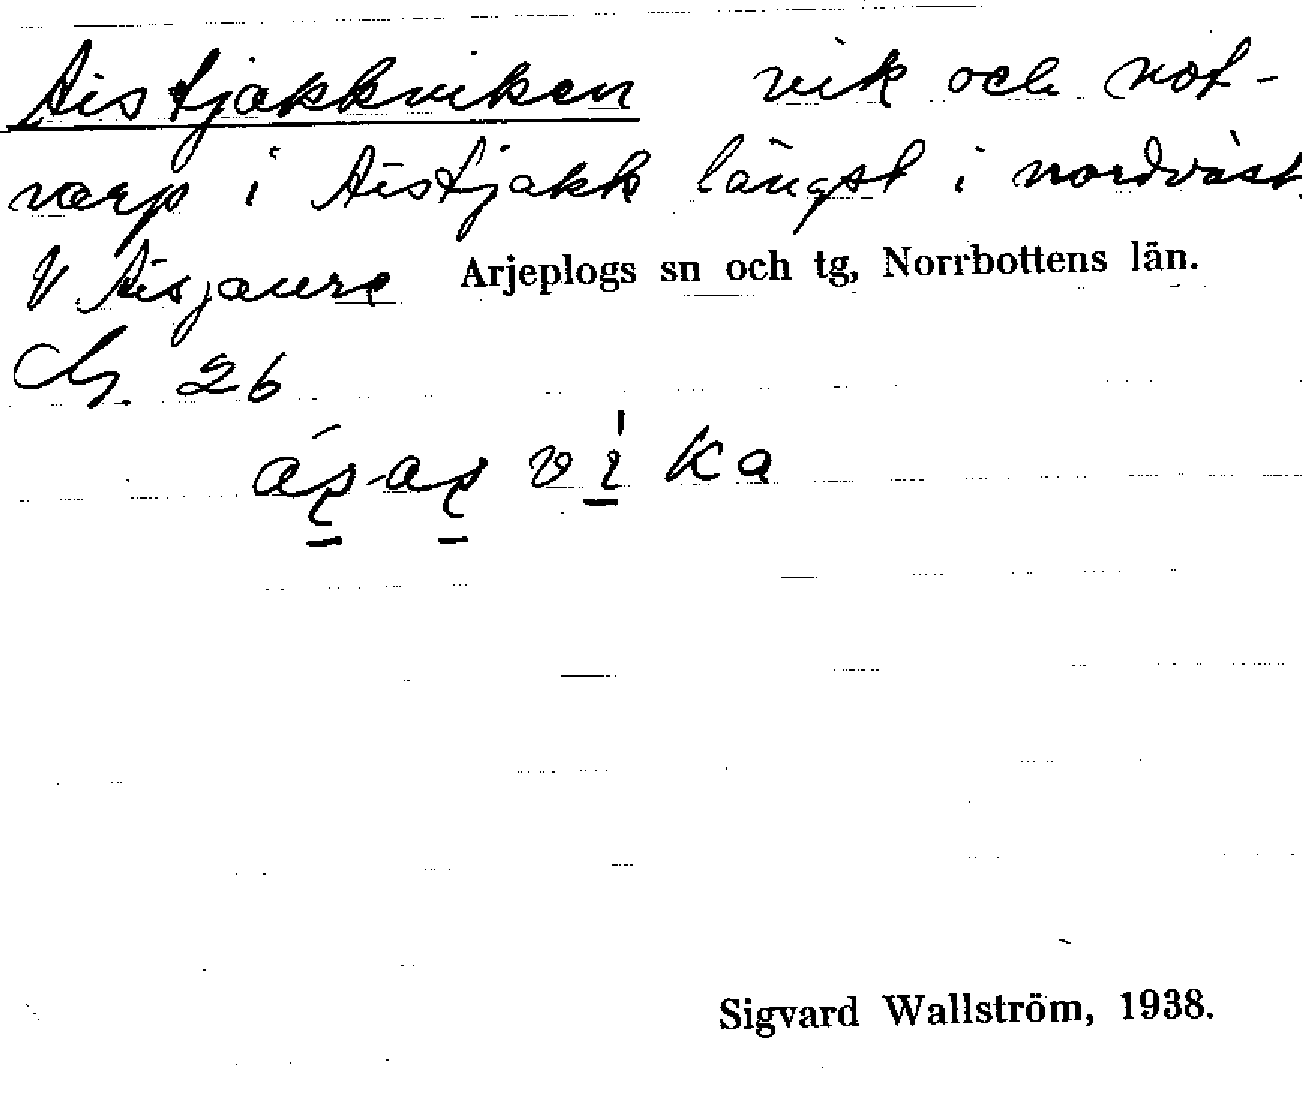 Aistjakkviken vik och not-
varp i Aistjakk längst i nordväst.
V Aisjaure Arjeplogs sn och tg, Norrbottens län.
26
Sigvard Wallström, 1938.